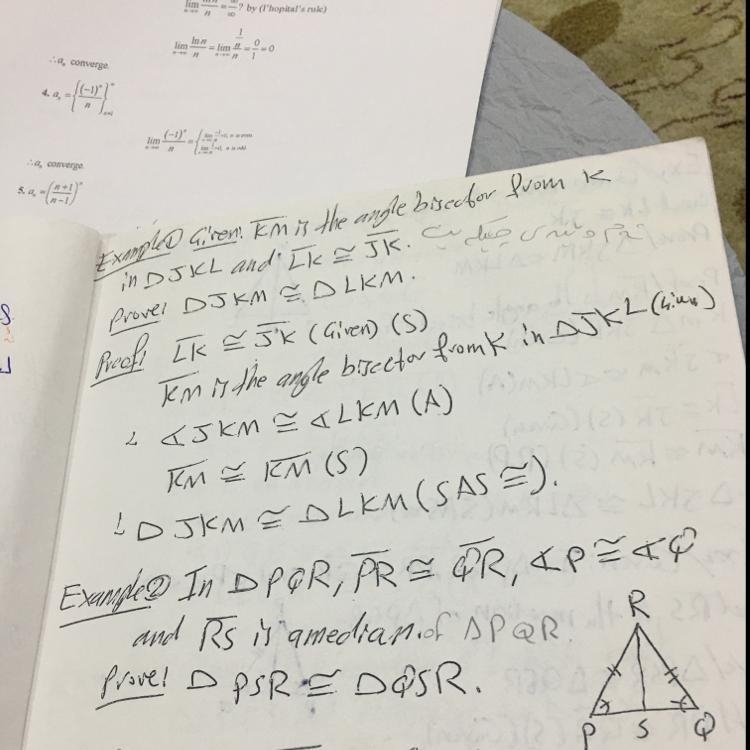 lim ln n / n = ∞/∞ ? by (l'hopital's rule)
lim n→∞ ln n / n = lim n→∞ (1/n) / n = 0/1 = 0
∴ aₙ converge.
4. aₙ = {(-1)ⁿ / n}
lim n→∞ (-1)ⁿ / n =
∴ aₙ converge.
5. aₙ = ((n+1)/(n-1))ⁿ
Example① Given: K̅M̅ is the angle bisector from K
in △JKL and L̅K̅ ≅ J̅K̅.
Prove! △JKM ≅ △LKM.
Proof! L̅K̅ ≅ J̅K̅ (Given) (S)
K̅M̅ is the angle bisector from K in △JKL (Given)
∴ ∢JKM ≅ ∢LKM (A)
K̅M̅ ≅ K̅M̅ (S)
∴ △JKM ≅ △LKM (SAS ≅).
Example② In △PQR, P̅R̅ ≅ Q̅R̅, ∢P ≅ ∢Q
and R̅S̅ is a median of △PQR.
Prove! △PSR ≅ △QSR.
R
P S Q